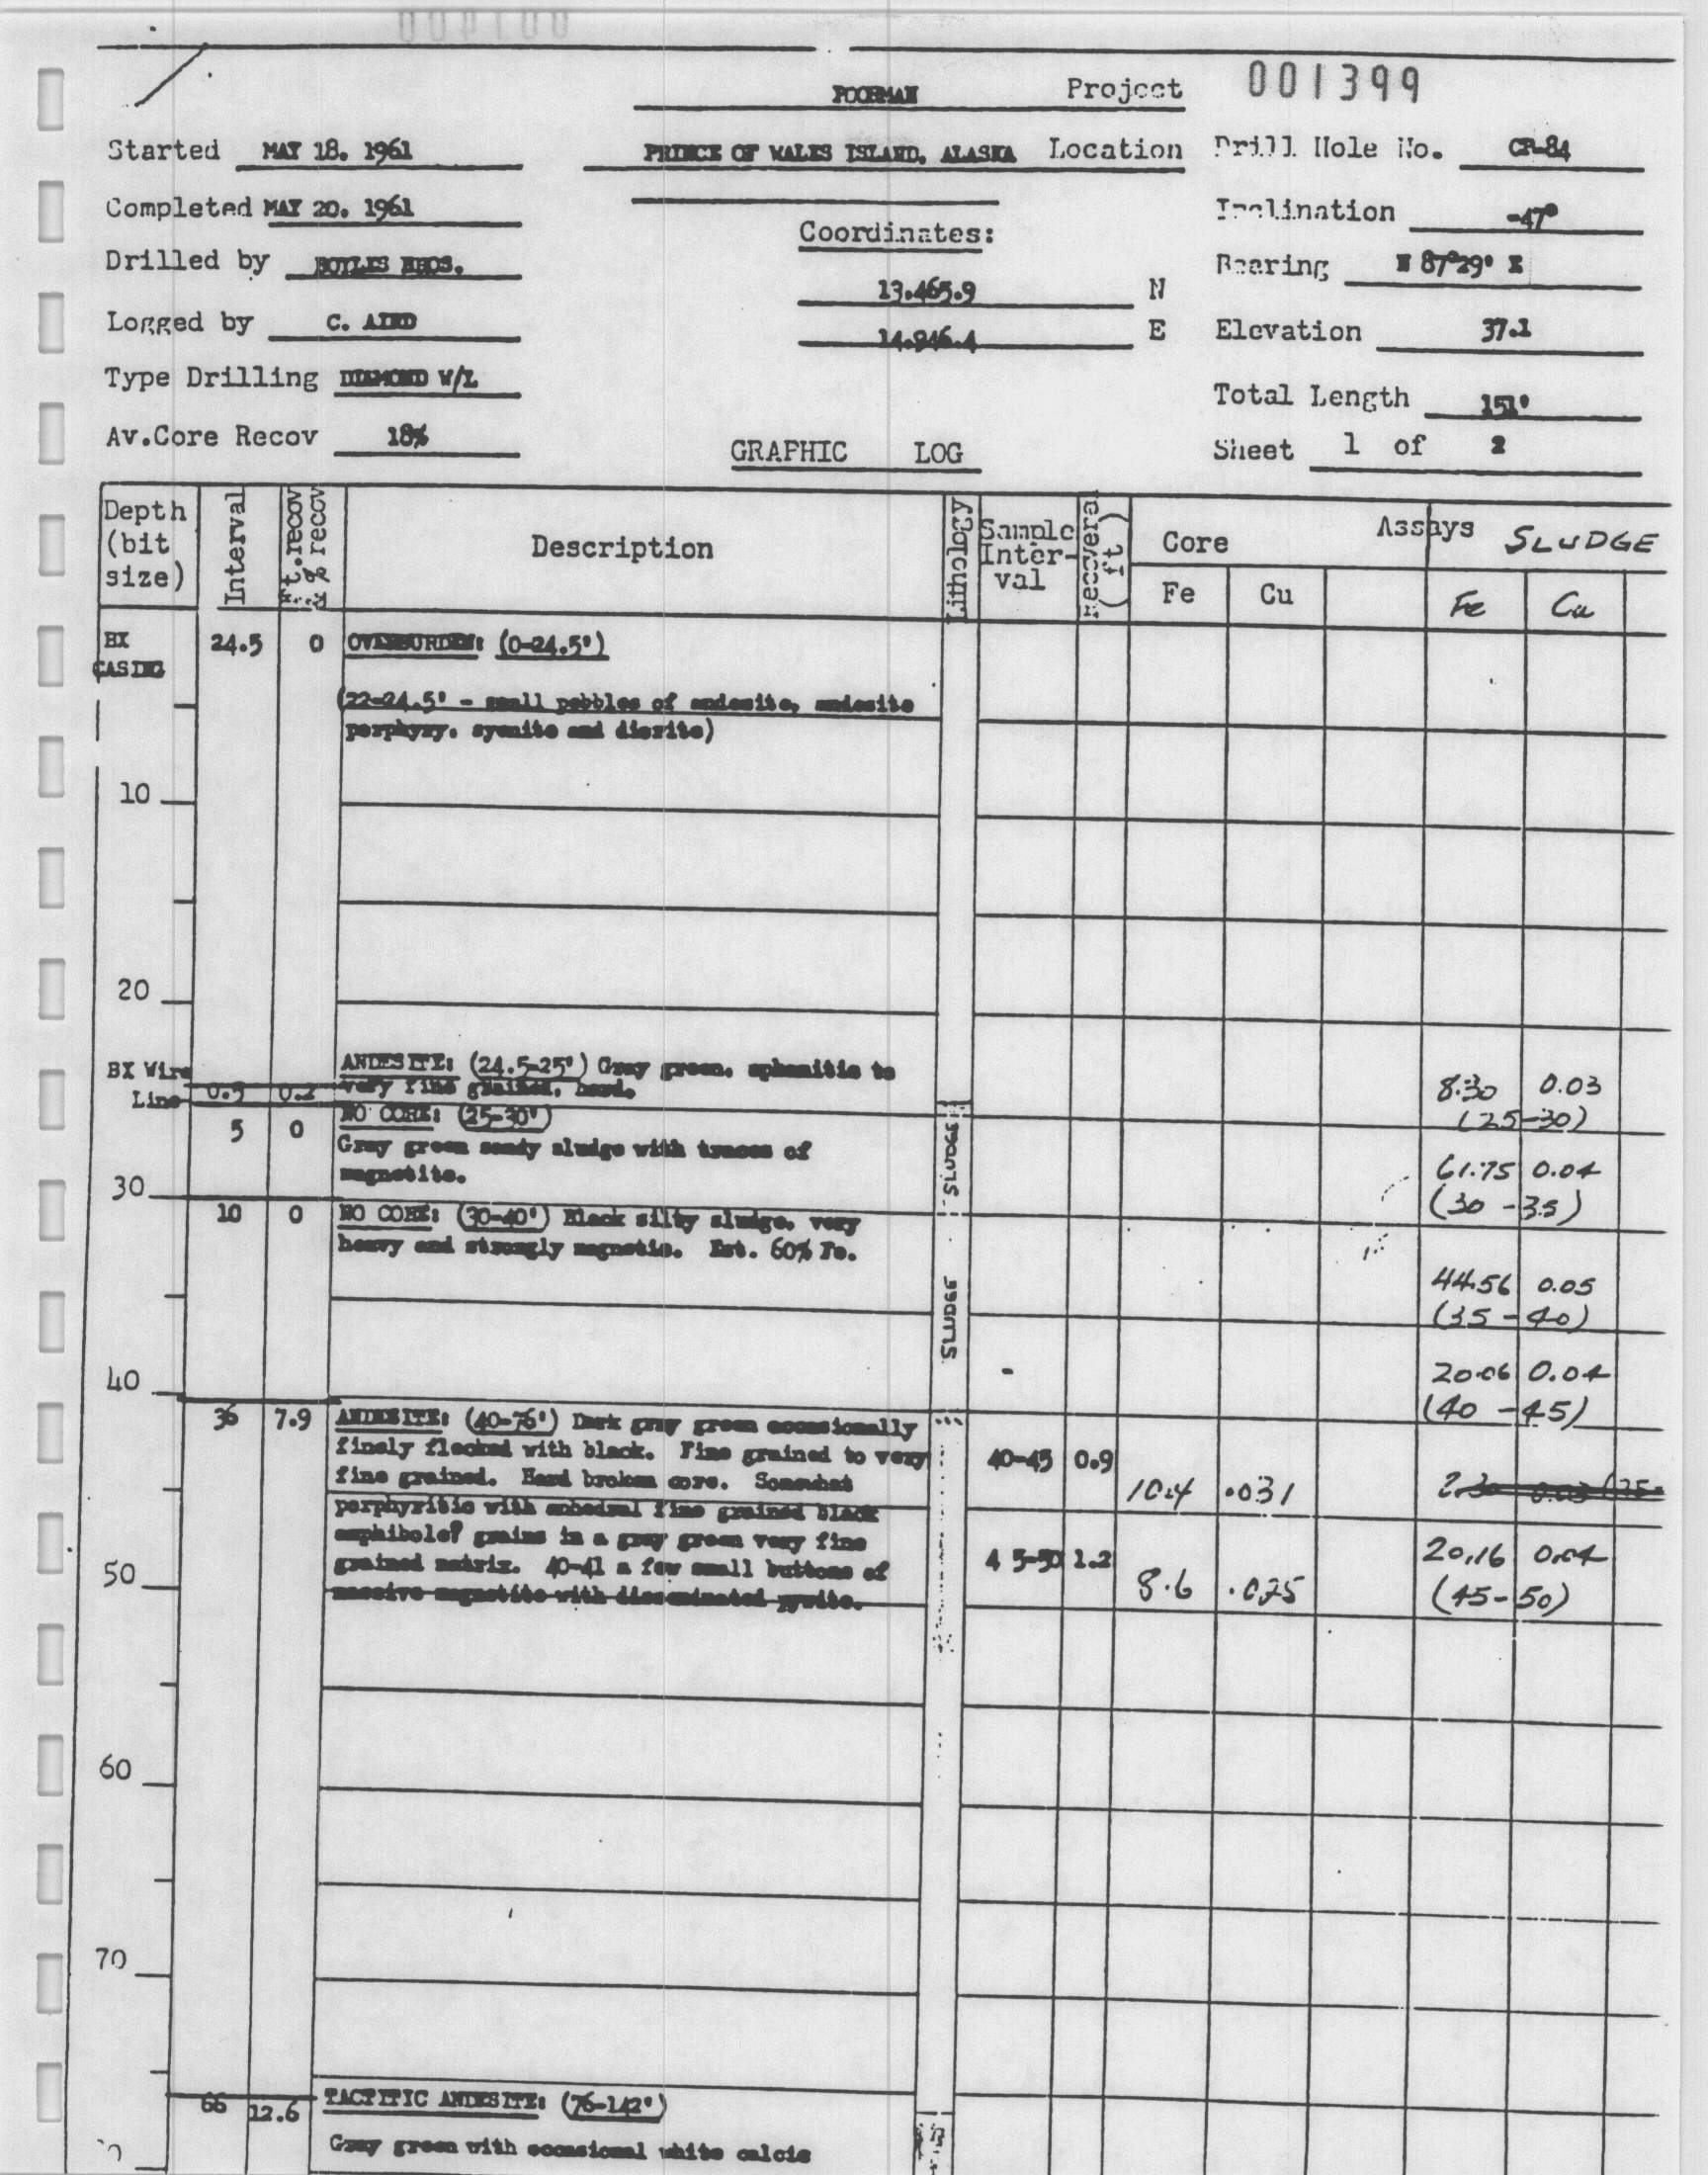 POORMAN Project 001399
Started MAY 18, 1961 PRINCE OF WALES ISLAND, ALASKA Location Drill Hole No. CP-84
Completed MAY 20, 1961 Inclination -47°
Coordinates:
Drilled by BOYLES BROS. Bearing N 87°29' E
13,465.9 N
Logged by C. AIRD 14,946.4 E Elevation 37.1
Type Drilling DIAMOND W/L
Total Length 151'
Av.Core Recov 18%
GRAPHIC LOG Sheet 1 of 2
Depth (bit size) Interval Ft.recov & % recov Description Lithology Sample Inter-val Recovered (ft) Assays SLUDGE
Core
Fe Cu Fe Cu
BX CASING 24.5 0 OVERBURDEN: (0-24.5')
(22-24.5' - small pebbles of andesite, andesite
porphyry, syenite and diorite)
10
20
BX Wire Line 0.5 0.2 ANDESITE: (24.5-25') Gray green, aphanitic to
very fine grained, hard.
8.30 0.03
(25-30)
5 0 NO CORE: (25-30')
Gray green sandy sludge with traces of
magnetite.
SLUDGE
61.75 0.04
(30-35)
30
10 0 NO CORE: (30-40') Black silty sludge, very
heavy and strongly magnetic. Est. 60% Fe.
SLUDGE
44.56 0.05
(35-40)
40
20.06 0.04
(40-45)
36 7.9 ANDESITE: (40-76') Dark gray green occasionally
finely flecked with black. Fine grained to very
fine grained. Hard broken core. Somewhat
porphyritic with anhedral fine grained black
amphibole? grains in a gray green very fine
grained matrix. 40-41 a few small buttons of
massive magnetite with disseminated pyrite.
40-45 0.9 10.4 .031
2.30 0.03
45-50 1.2 8.6 .025 20.16 0.04
(45-50)
50
60
70
66 12.6 TACTITIC ANDESITE: (76-142')
Gray green with occasional white calcic